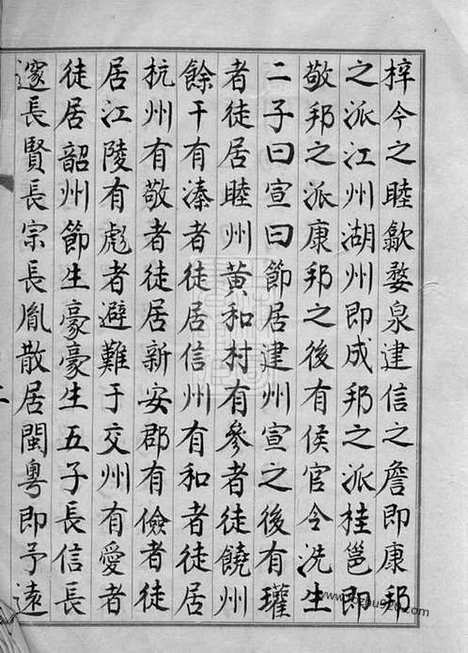 梓今之睦歙婺泉建信之詹即康邦
之派江州湖州即成邦之派桂邕即
敬邦之派康邦之後有侯官令洗生
二子曰宣曰節居建州宣之後有瓘
者徒居睦州黄和村有參者徒饒州
餘干有溱者徒居信州有和者徒居
杭州有敬者徒居新安郡有儉者徒
居江陵有彪者避難于交州有愛者
徒居韶州節生豪豪生五子長信長
邃長賢長宗長胤散居閩粤即予遠